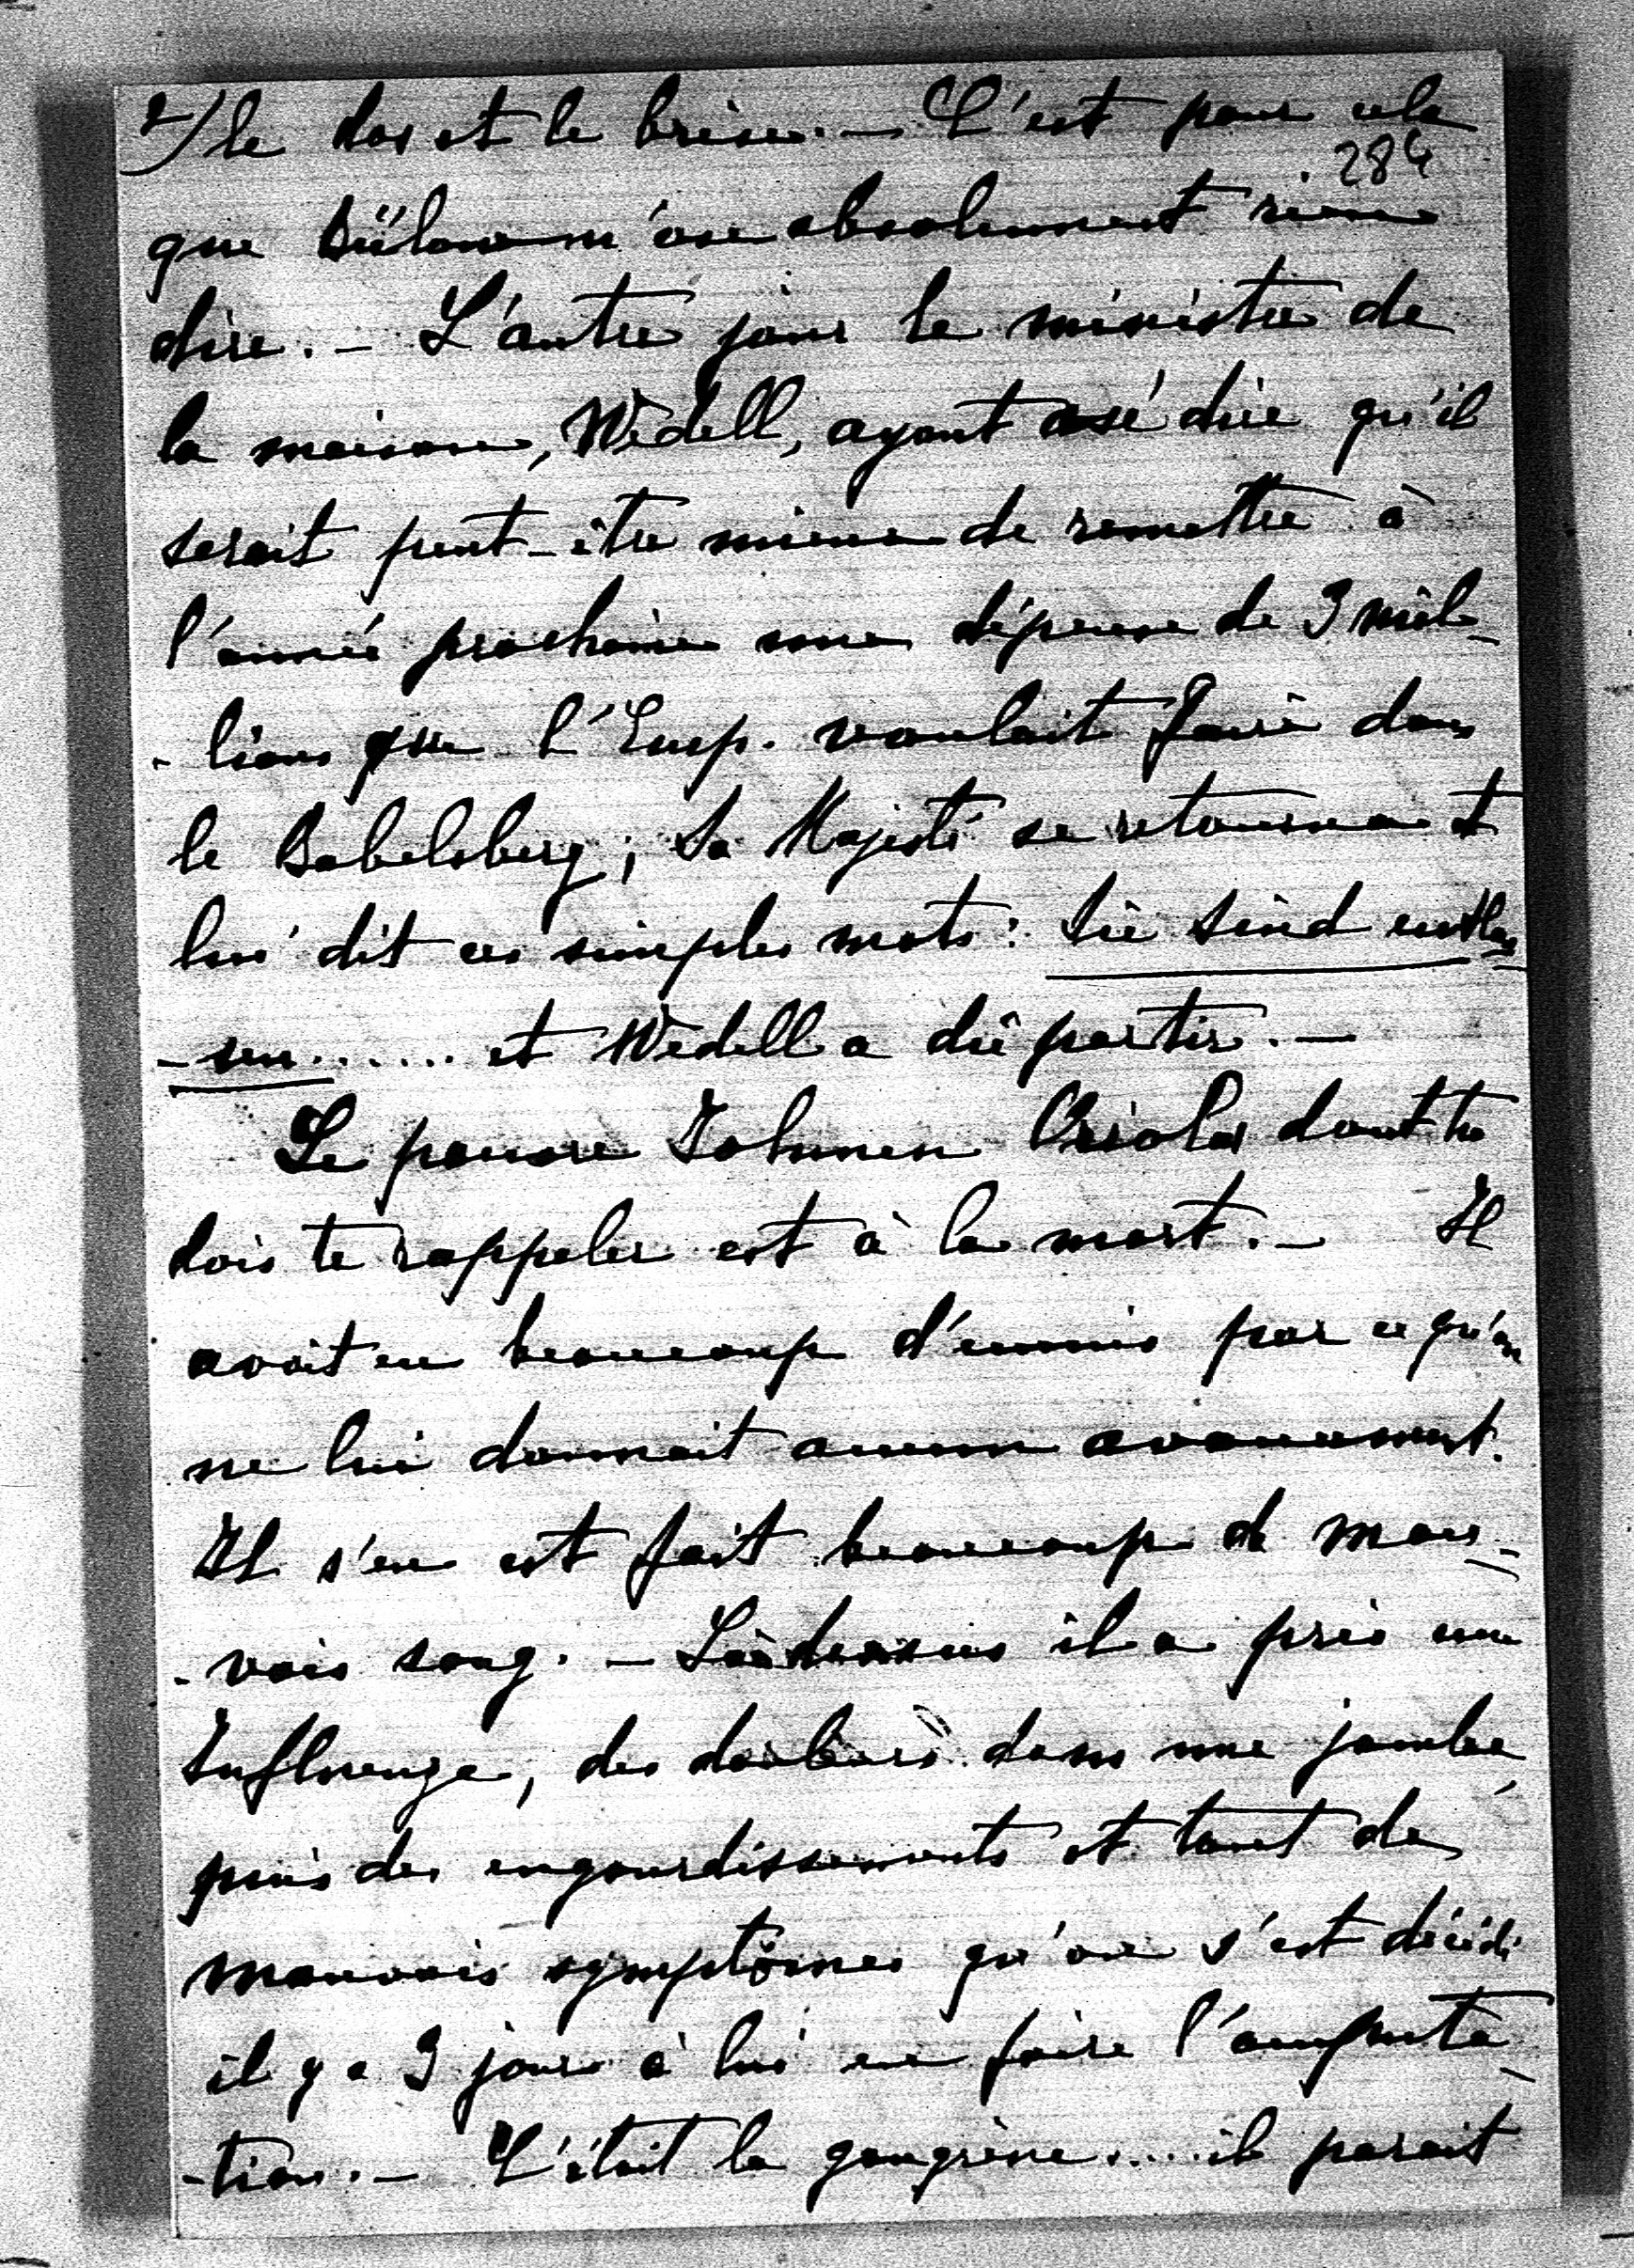 2/ le dos et le brise. — C'est pour cela
284
que Bülow n'ose absolument rien
dire. — L'autre jour le ministre de
la maison, Wedell, ayant osé dire qu'il
serait peut-être mieux de remettre à
l'année prochaine une dépense de 3 mil-
-lions que l'Emp. voulait faire dans
le Babelsberg; Sa Majesté se retourna et
lui dit ces simples mots: Sie sind entlas-
-sen...... et Wedell a dû partir. —
Le pauvre Johnnen dont tu
dois te rappeler est à la mort. — Il
avait eu beaucoup d'ennuis par ce qu'on
ne lui donnait aucun avancement.
Il s'en est fait beaucoup de mau-
-vais sang. — Làdessus il a pris une
Influenza, des douleurs dans une jambe,
puis des engourdissements et tant de
mauvais symptômes qu'on s'est décidé
il y a 3 jours à lui en faire l'amputa-
-tion. — C'était la gangrène.... il parait